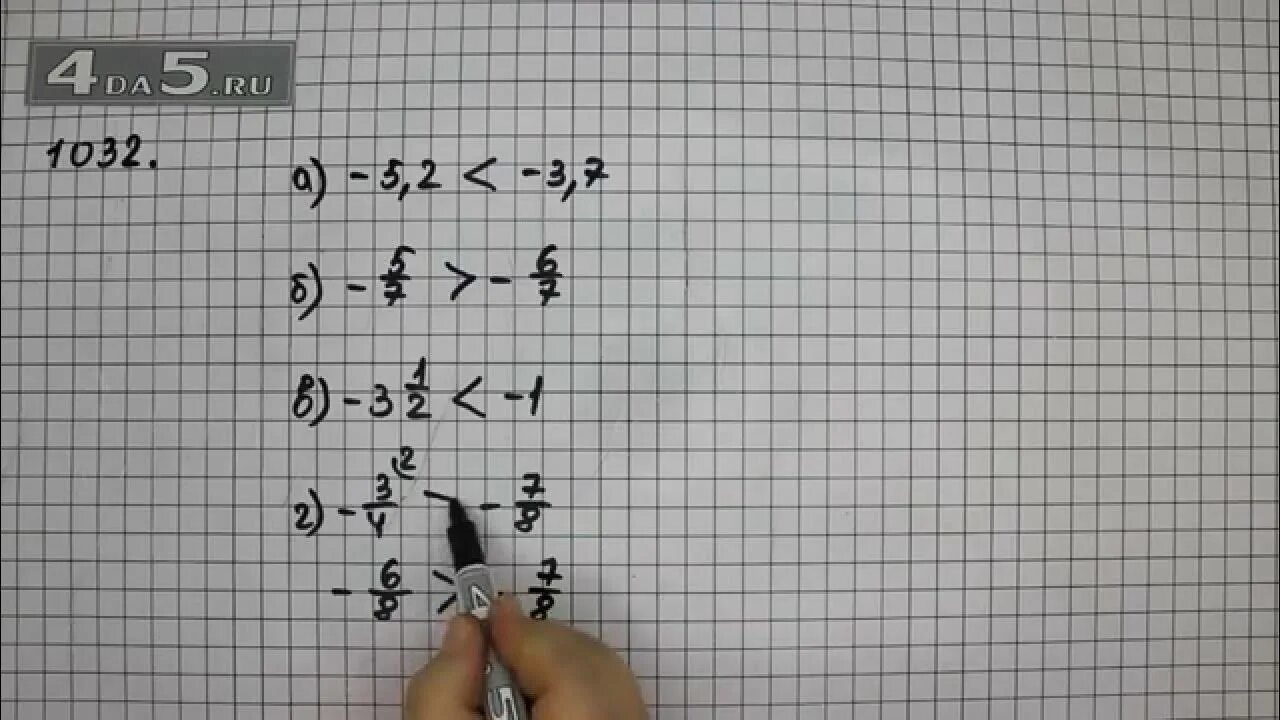 4DA5.RU
1032.
а) - 5,2 < -3,7
б) - 5/7 > - 6/7
в) - 3 1/2 < -1
г) - 3/4 (2 - 7/8
- 6/8 > - 7/8